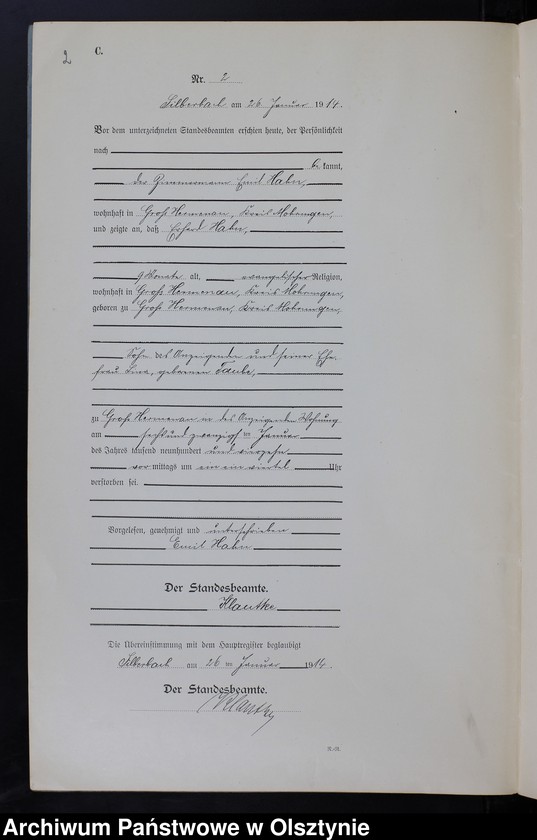 2
C.
Nr. 2
Silberbach am 26 Januar 1914.
Vor dem unterzeichneten Standesbeamten erschien heute, der Persönlichkeit
nach
be kannt,
der Zimmermann Emil Hahn,
wohnhaft in Groß Hermenau, Kreis Mohrungen,
und zeigte an, daß Erhard Hahn,
9 Monate alt, evangelischer Religion,
wohnhaft in Groß Hermenau, Kreis Mohrungen,
geboren zu Groß Hermenau, Kreis Mohrungen,
Sohn des Anzeigenden und seiner Ehe-
frau Lina, geborenen Taube,
zu Groß Hermenau in des Anzeigenden Wohnung
am sechsundzwanzigsten Januar
des Jahres tausend neunhundert und vierzehn
vor mittags um ein einviertel Uhr
verstorben sei.
Vorgelesen, genehmigt und unterschrieben
Emil Hahn
Der Standesbeamte.
Klautke
Die Übereinstimmung mit dem Hauptregister beglaubigt
Silberbach am 26 ten Januar 1914.
Der Standesbeamte.
Klautke
Archiwum Państwowe w Olsztynie